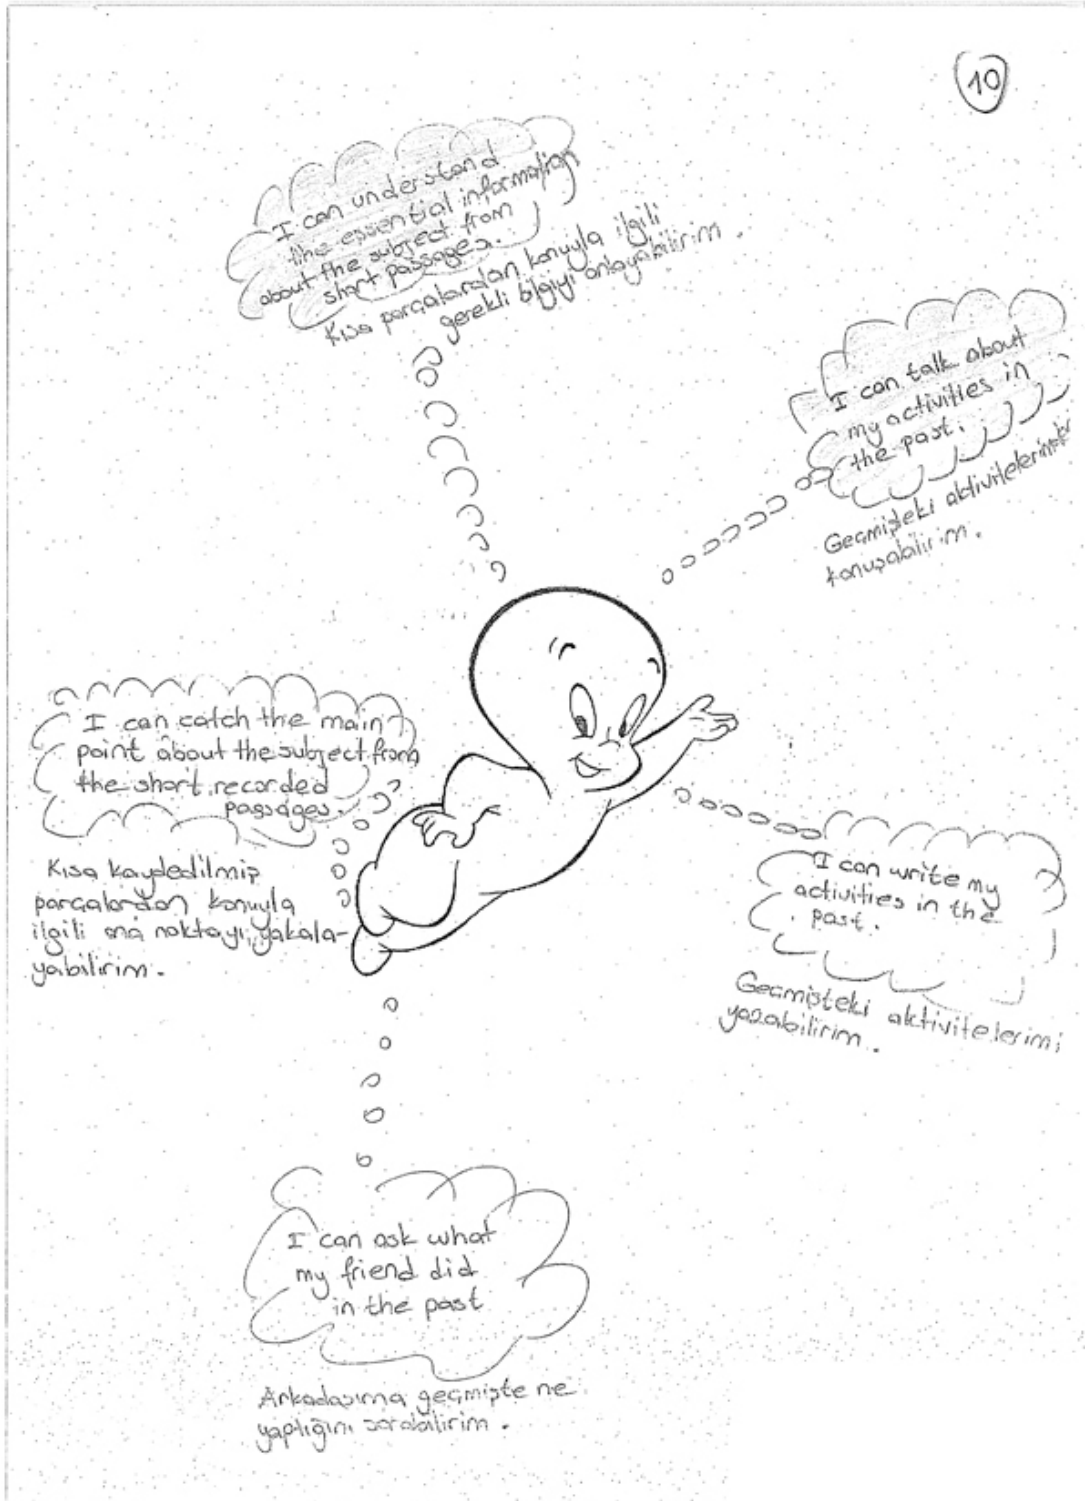 10
I can understand
the essential information
about the subject from
short passages.
Kısa parçalardan konuyla ilgili
gerekli bilgiyi anlayabilirim.
I can talk about
my activities in
the past.
Geçmişteki aktivitelerimi
konuşabilirim.
I can catch the main
point about the subject from
the short recorded
passages.
Kısa kaydedilmiş
parçalardan konuyla
ilgili ana noktayı yakala-
yabilirim.
I can write my
activities in the
past.
Geçmişteki aktivitelerimi
yazabilirim.
I can ask what
my friend did
in the past
Arkadaşıma geçmişte ne
yaptığını sorabilirim.